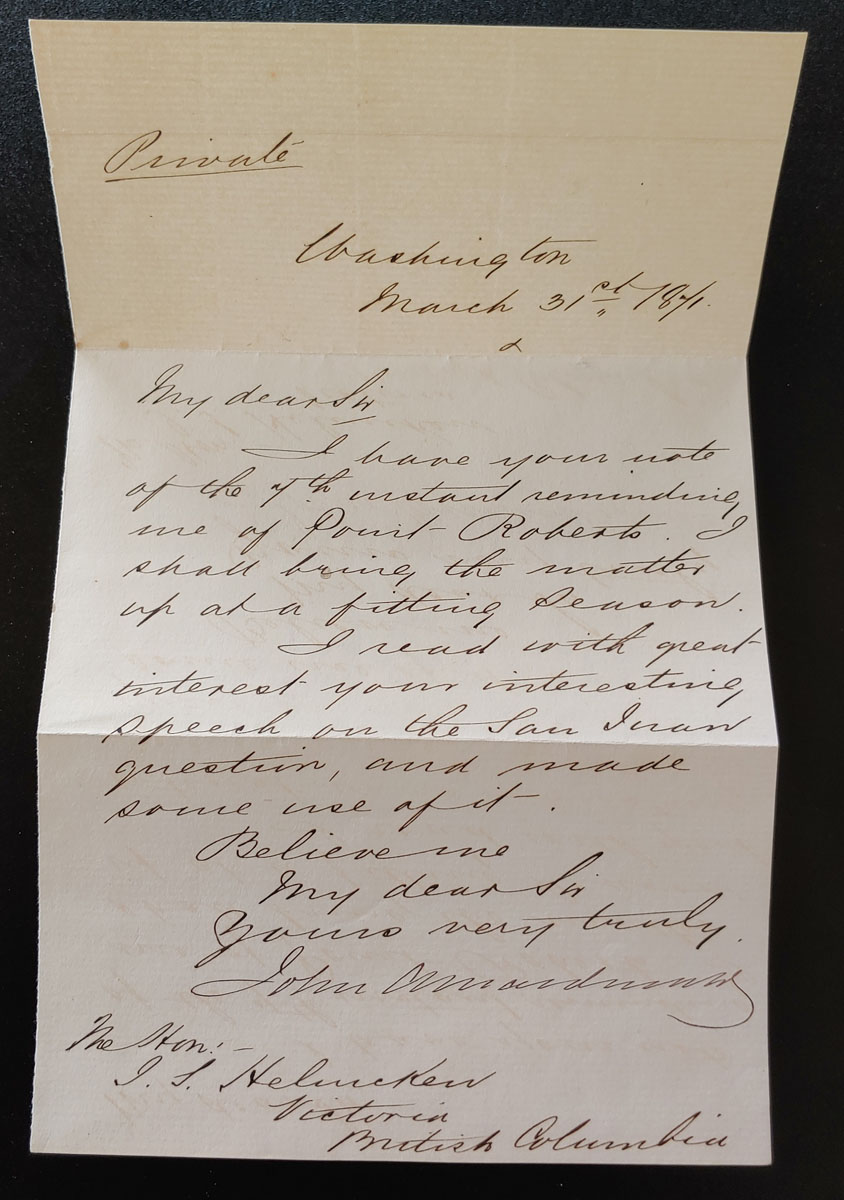 Private
Washington
March 31st 1871.
My dear Sir
I have your note
of the 7th instant reminding
me of Point Roberts. I
shall bring the matter
up at a fitting season.
I read with great
interest your interesting
speech on the San Juan
question, and made
some use of it.
Believe me
My dear Sir
Yours very truly.
John A Macdonald
The Hon:-
J. S. Helmcken
Victoria
British Columbia